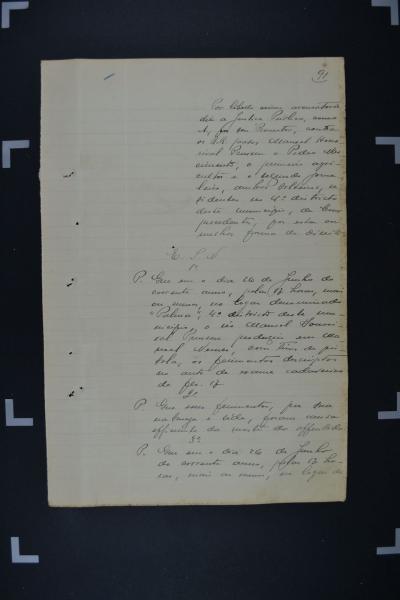 91
Por libello crime accusatorio
diz a Justiça Publica, como
A, por seu Promotor, contra
os R.R. Manoel
e Pedro Nas-
cimento, o primeiro agri-
cultor e o segundo jorna-
leiro, ambos solteiros, re-
sidentes no 4º districto
deste municipio, de
por esta ou
melhor forma de Direito
E. S. N.
1º
P. Que em o dia 26 de Junho do
corrente anno, pelas 17 horas, mais
ou menos, no lugar denominado
"Palma", 4º districto deste mu-
nicipio, o réo Manoel
produziu em Ma-
noel Nunes, com tiros de pis-
tola, os ferimentos descriptos
no auto de exame cadaverico
de fls. 17
2º
P. Que esses ferimentos, por sua
natureza e séde, foram causa
efficiente da morte do offendido
3º
P. Que em o dia 26 de Junho
do corrente anno, pelas 17 ho-
ras, mais ou menos, no lugar de